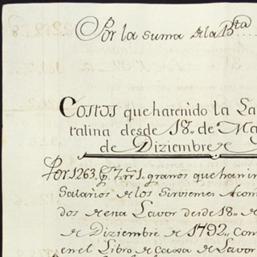 Por la suma de la Bta
Costos que ha tenido la La
tralina desde 18,, de Ma
de Diziembre de
Por 1263,, 7,, 1,, granos que han in
Salarios de los Sirvientes Acom
dos de esta Lavor desde 18,, de
de Diziembre de 1792,, Com
en el Libro de Caxa de Lavor